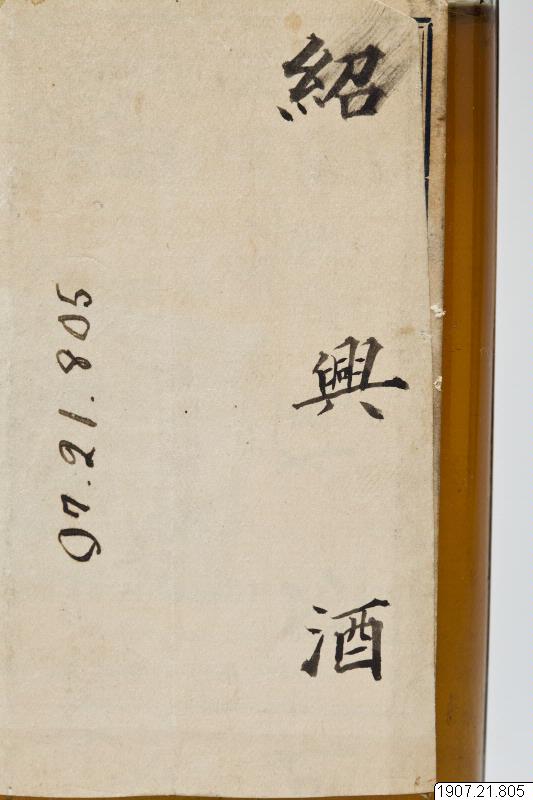 紹興酒
07.21.805
1907.21.805